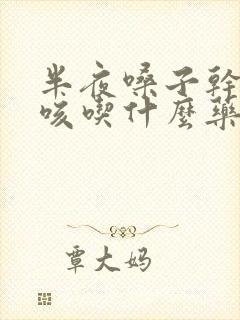 半夜嗓子幹
咳喫什麼藥
覃大妈